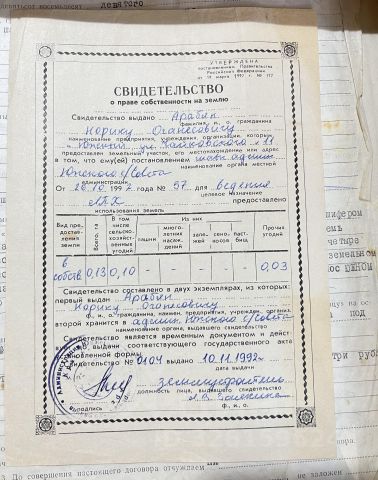 девятого
УТВЕРЖДЕНА
постановлением Правительства
Российской Федерации
от 19 марта 1992 г. № 177
СВИДЕТЕЛЬСТВО
о праве собственности на землю
Свидетельство выдано Арабян
фамилия, и., о. гражданина
Норику Оганесовичу
наименование предприятия, учреждения, организации, которым
п. Южный ул. Чайковского 11
предоставлен земельный участок, его местонахождение или адрес
в том, что ему(ей) постановлением
наименование органа местной
Южского с/Совета
администрации
От 26.10 1992 года № 57 для ведения
целевое назначение
ЛПХ предоставлено
использования земель
Вид предоставления земли
Всего, га
В том числе сельскохозяйственных угодий
Из них
пашни
многолетних насаждений
залежей
сенокосов
пастбищ
Прочих угодий
в собств. 0,13 0,10 - - - - - 0,03
Свидетельство составлено в двух экземплярах, из которых:
первый выдан Арабян
Норику Оганесовичу
ф., и., о. гражданина, наимен. предприятия, учрежден., организ.
второй хранится в админ. Южского с/Совета
наименование органа, выдавшего свидетельство
Свидетельство является временным документом и дейст-
выдачи соответствующего государственного акта
установленной формы
Свидетельство № 0104 выдано 10.11.1992г.
дата выдачи
землеустроитель
должность лица, выдавшего свидетельство
подпись
ф., и., о.
ифером
четыре
земельном
под
три руб
3 До совершения настоящего договора отчуждаем
не заложен